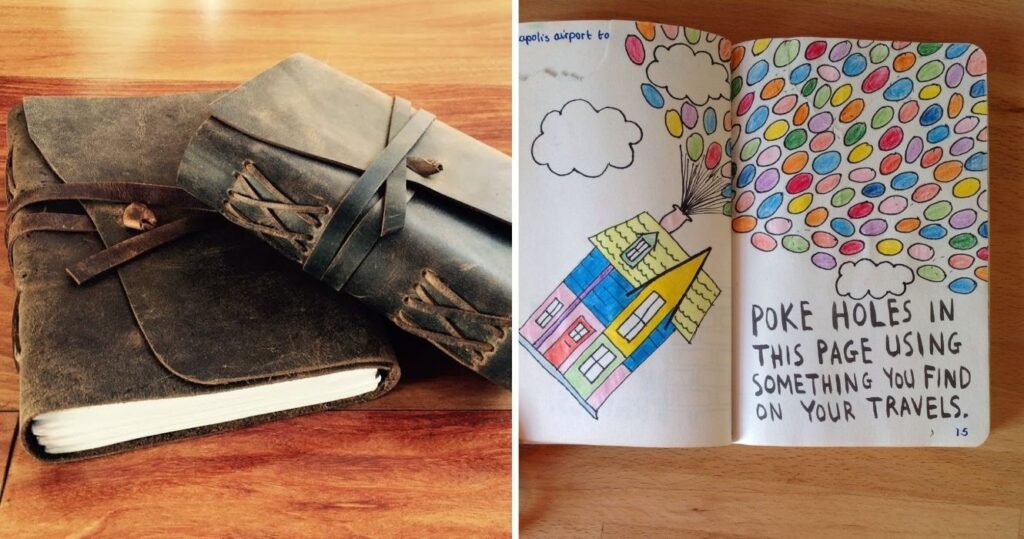 apolis airport to
POKE HOLES IN
THIS PAGE USING
SOMETHING YOU FIND
ON YOUR TRAVELS.
15